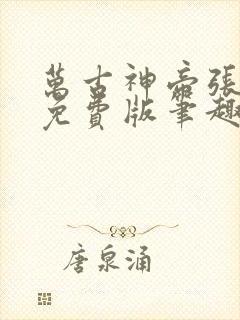 萬古神帝張
免費版筆趣
唐泉涌